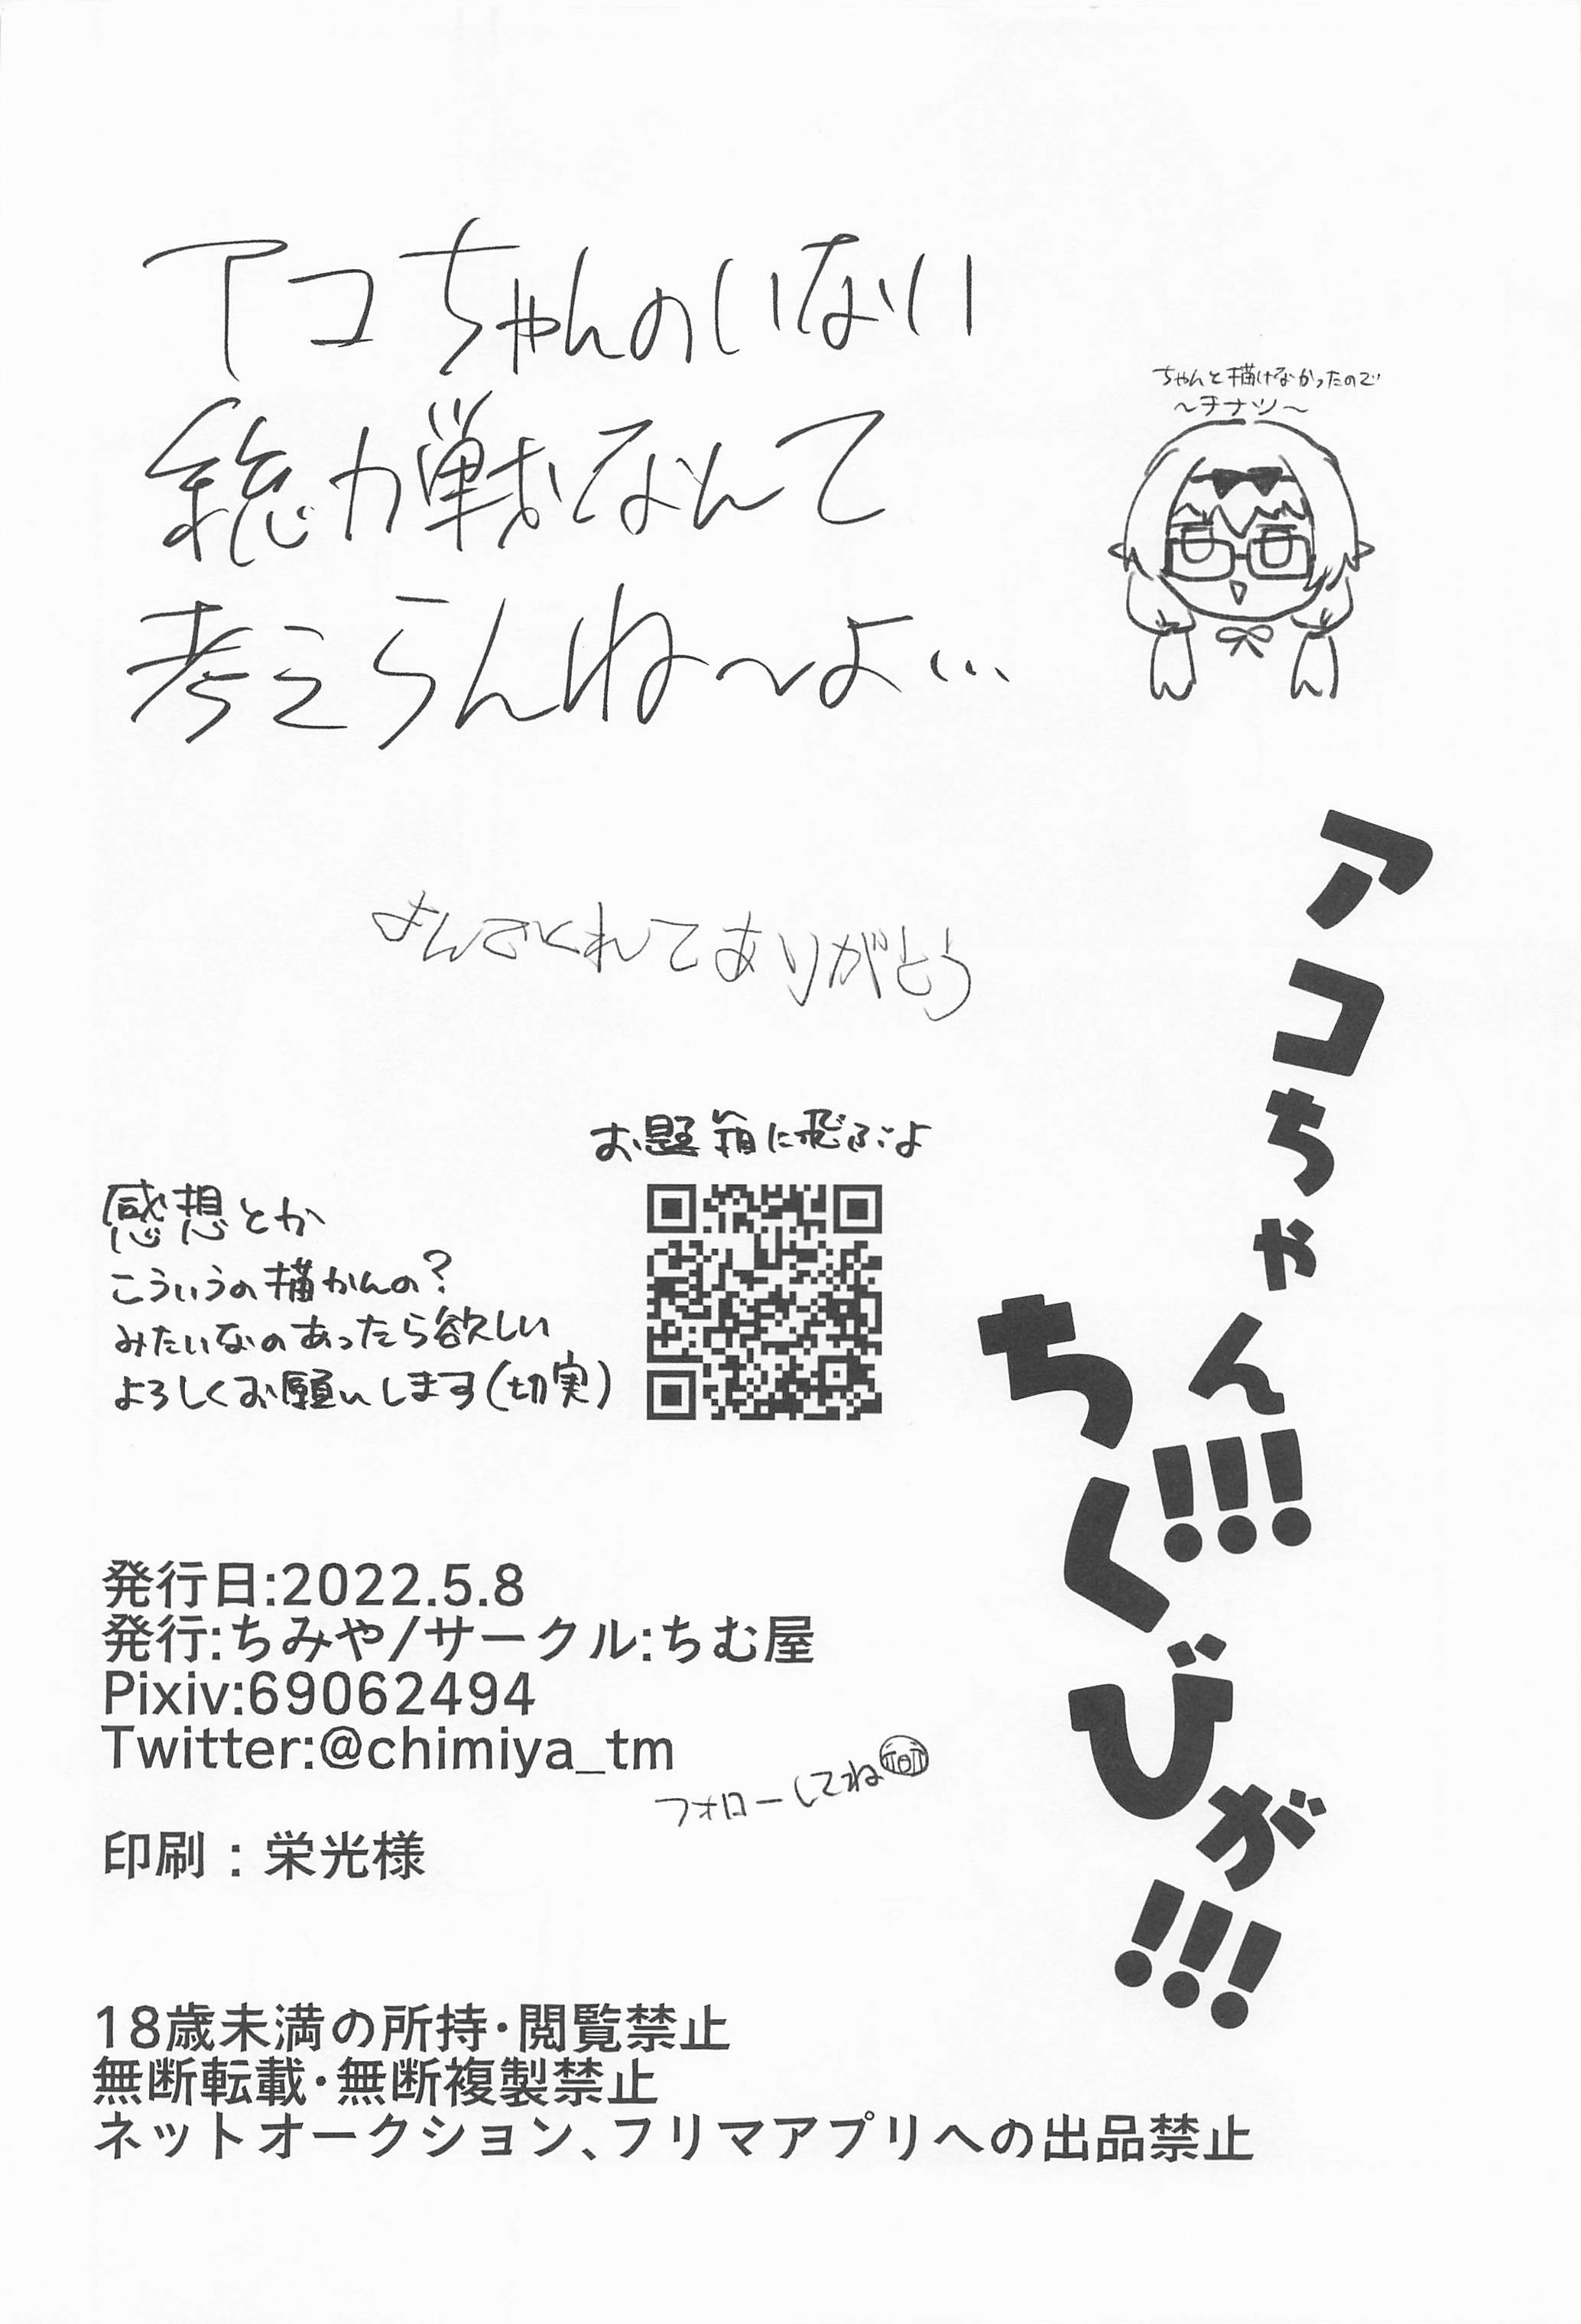 アコちゃんのいない
総力戦なんて
考えらんね〜よ…
ちゃんと描けなかったので
〜チナツ〜
よんでくれてありがとう
アコちゃん!!!
ちくびが!!!
お題箱に飛ぶよ
感想とか
こういうの描かんの?
みたいなのあったら欲しい
よろしくお願いします(切実)
発行日:2022.5.8
発行:ちみや/サークル:ちむ屋
Pixiv:69062494
Twitter:@chimiya_tm
フォローしてね
印刷：栄光様
18歳未満の所持・閲覧禁止
無断転載・無断複製禁止
ネットオークション、フリマアプリへの出品禁止